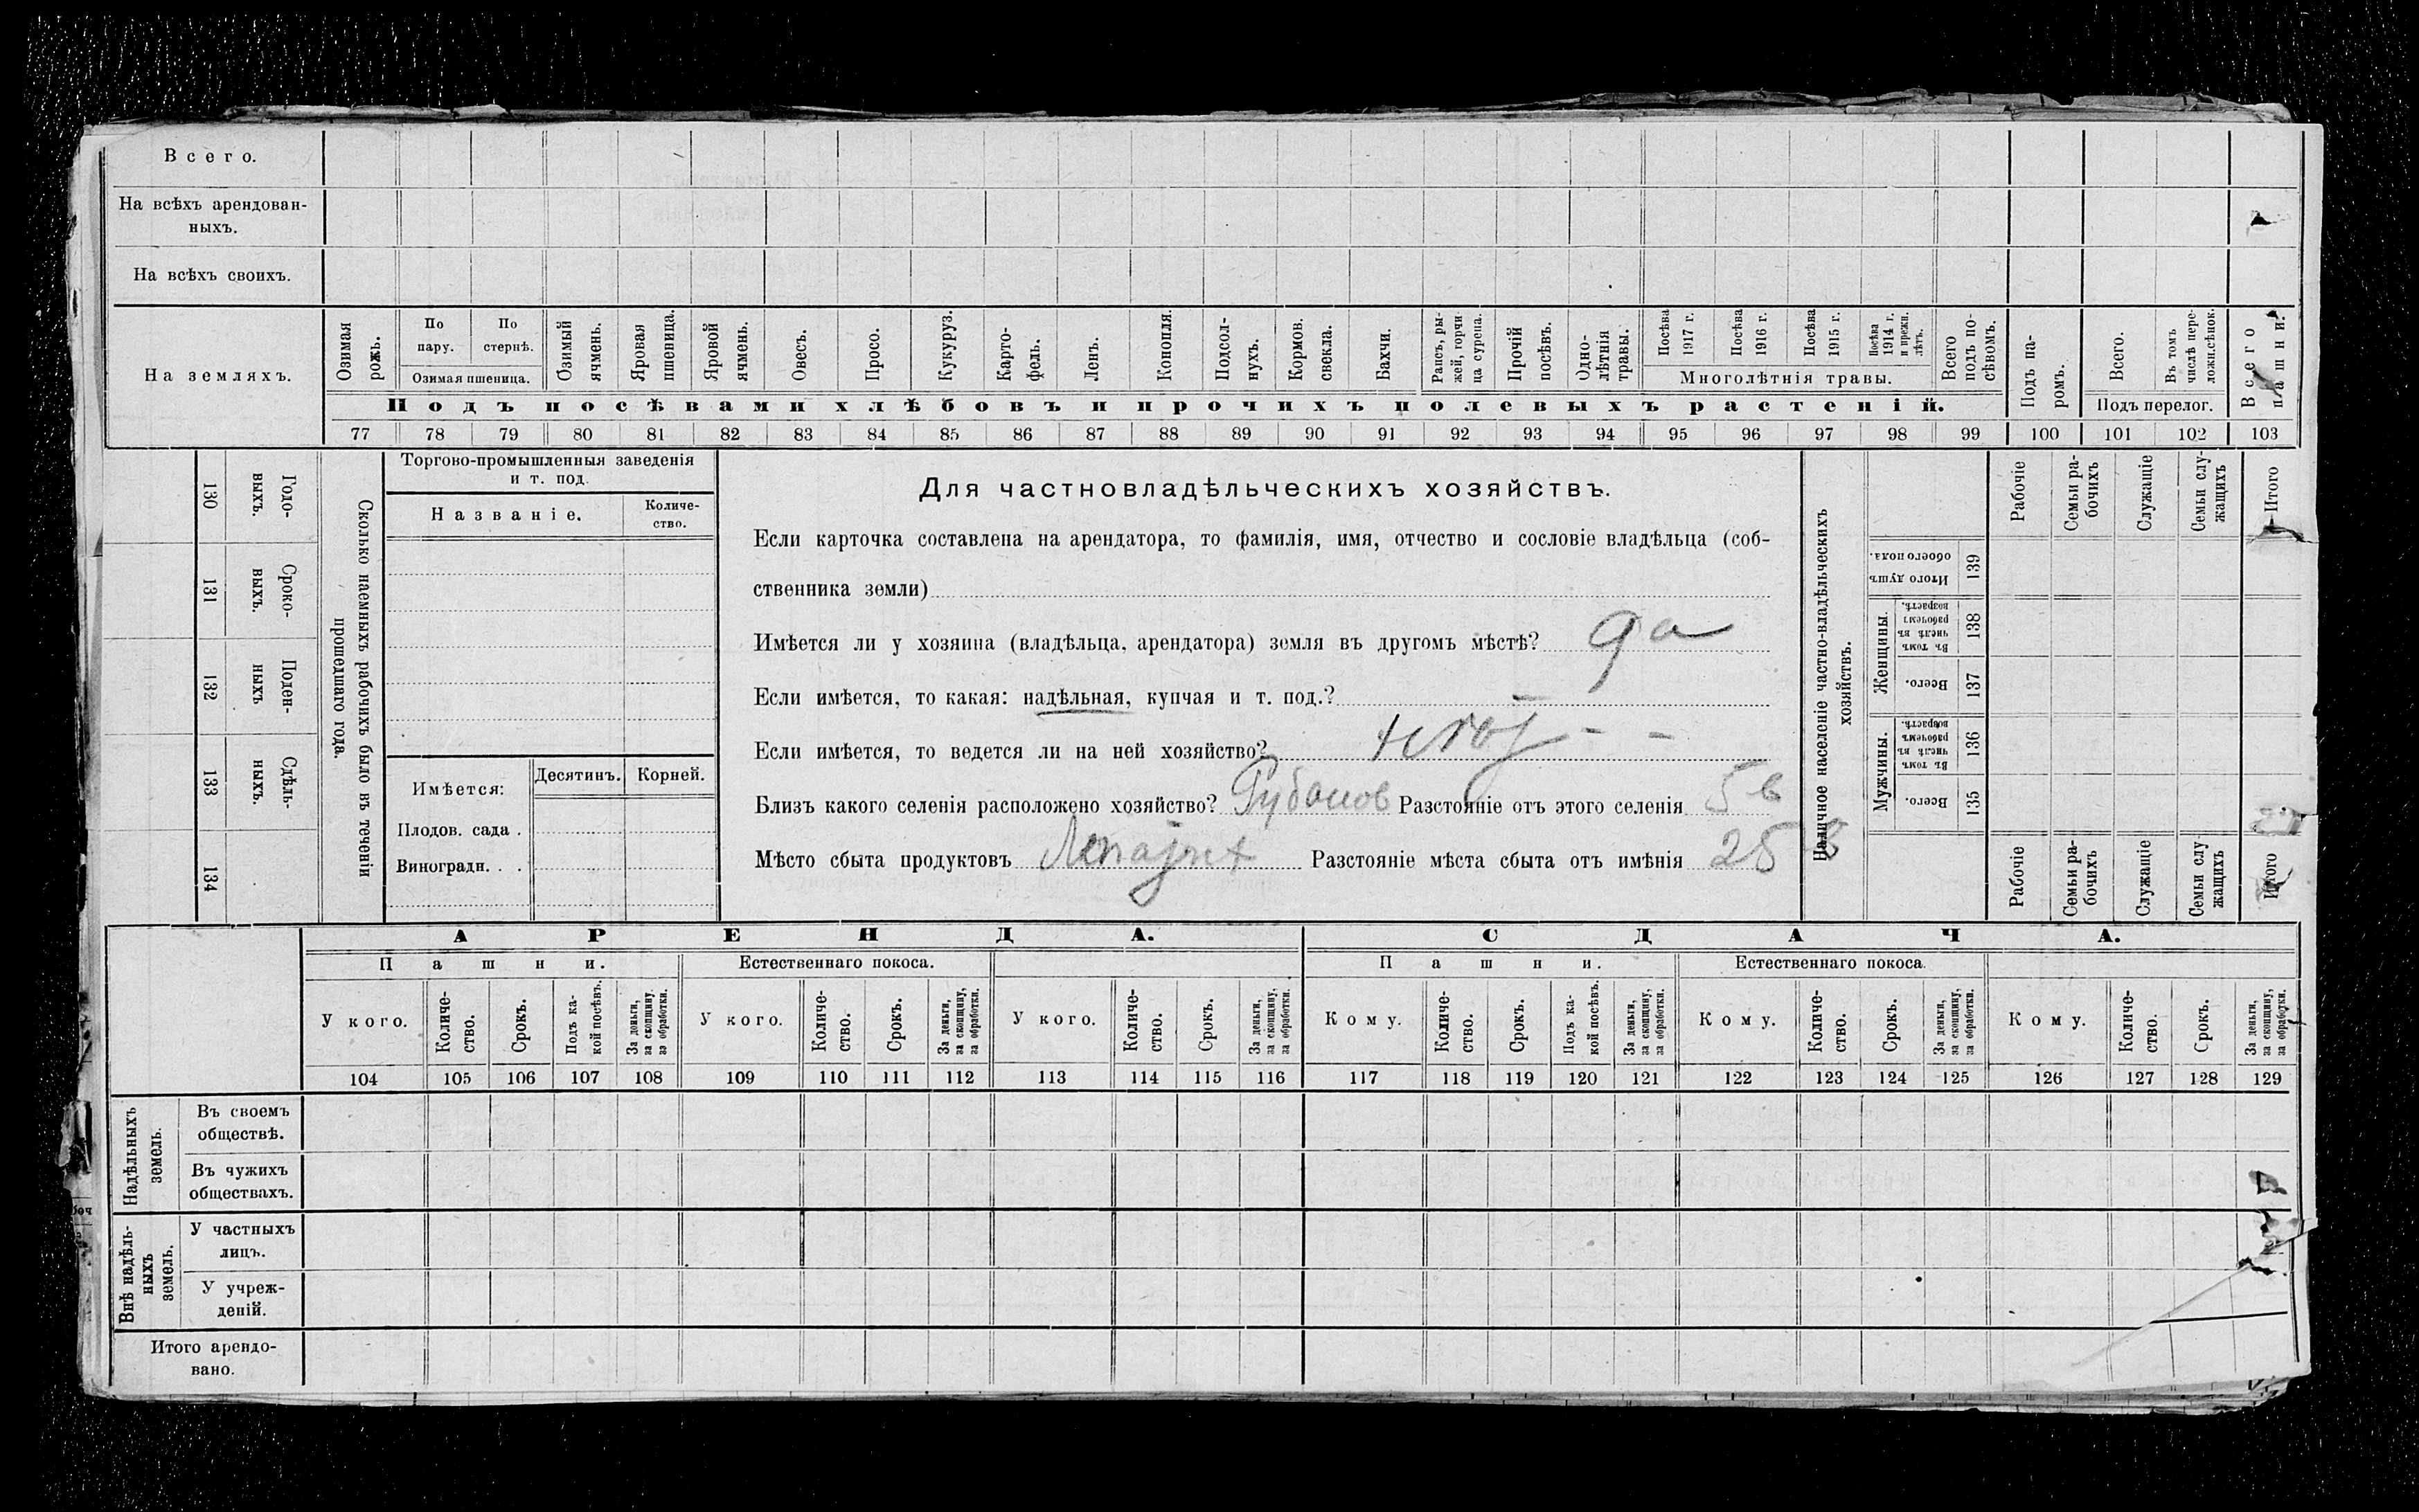 Всего.
На всѣхъ арендован-
ныхъ.
На всѣхъ своихъ.
На земляхъ.
Озимая рожь.
По пару.
По стернѣ.
Озимая пшеница.
Озимый ячмень.
Яровая пшеница.
Яровой ячмень.
Овесъ.
Просо.
Кукуруз.
Карто-
фель.
Ленъ.
Конопля.
Подсол-
нухъ.
Кормов. свекла.
Бахчи.
Рапсъ, ры-
жей, горчи-
ца сурепа.
Прочій посѣвъ.
Одно-
лѣтнія травы.
Посѣва 1917 г.
Посѣва 1916 г.
Посѣва 1915 г.
Посѣва 1914 г. и прежн. лѣтъ.
Многолѣтнія травы.
Всего подъ по-
сѣвомъ.
Подъ посѣвами хлѣбовъ и прочихъ полевыхъ растеній.
Подъ па-
ромъ.
Всего.
Въ томъ числѣ пере-
ложн.сѣнок.
Подъ перелог.
Всего пашни.
77 78 79 80 81 82 83 84 85 86 87 88 89 90 91 92 93 94 95 96 97 98 99 100 101 102 103
130 131 132 133 134
Годо-
выхъ.
Сроко-
выхъ.
Поден-
ныхъ
Сдѣль-
ныхъ.
Сколько наемныхъ рабочихъ было въ теченіи
прошедшаго года.
Торгово-промышленныя заведенія
и т. под.
Названіе.
Количе-
ство.
Имѣется:
Десятинъ.
Корней.
Плодов. сада .
Виноградн. . .
Для частновладѣльческихъ хозяйствъ.
Если карточка составлена на арендатора, то фамилія, имя, отчество и сословіе владѣльца (соб-
ственника земли)
Имѣется ли у хозяина (владѣльца, арендатора) земля въ другомъ мѣстѣ? да
Если имѣется, то какая: надѣльная, купчая и т. под.?
Если имѣется, то ведется ли на ней хозяйство?
Близъ какого селенія расположено хозяйство? Рубанов Разстояніе отъ этого селенія 5 в
Мѣсто сбыта продуктовъ Разстояніе мѣста сбыта отъ имѣнія 25 в
Наличное населеніе частно-владѣльческихъ
хозяйствъ.
Рабочіе
Семьи ра-
бочихъ
Служащіе
Семьи слу-
жащихъ
Итого
Итого душъ обоего пола.
139
Женщины.
Въ томъ числѣ въ рабочемъ возрастѣ.
138
Всего.
137
Мужчины.
Въ томъ числѣ въ рабочемъ возрастѣ.
136
Всего.
135
Рабочіе
Семьи ра-
бочихъ
Служащіе
Семьи слу
жащихъ
Итого
АРЕНДА. СДАЧА.
Пашни. Естественнаго покоса. Пашни. Естественнаго покоса.
У кого.
Количе-
ство.
Срокъ.
Подъ ка-
кой посѣвъ.
За деньги, за скопщину, за обработки.
У кого.
Количе-
ство.
Срокъ.
За деньги, за скопщину, за обработки.
У кого.
Количе-
ство.
Срокъ.
За деньги, за скопщину, за обработки.
Кому.
Количе-
ство.
Срокъ.
Подъ ка-
кой посѣвъ.
За деньги, за скопщину, за обработки.
Кому.
Количе-
ство.
Срокъ.
За деньги, за скопщину, за обработки.
Кому.
Количе-
ство.
Срокъ.
За деньги, за скопщину, за обработки.
104 105 106 107 108 109 110 111 112 113 114 115 116 117 118 119 120 121 122 123 124 125 126 127 128 129
Надѣльныхъ
земель.
Въ своемъ
обществѣ.
Въ чужихъ
обществахъ.
Внѣ надѣль-
ныхъ
земель.
У частныхъ
лицъ.
У учреж-
деній.
Итого арендо-
вано.